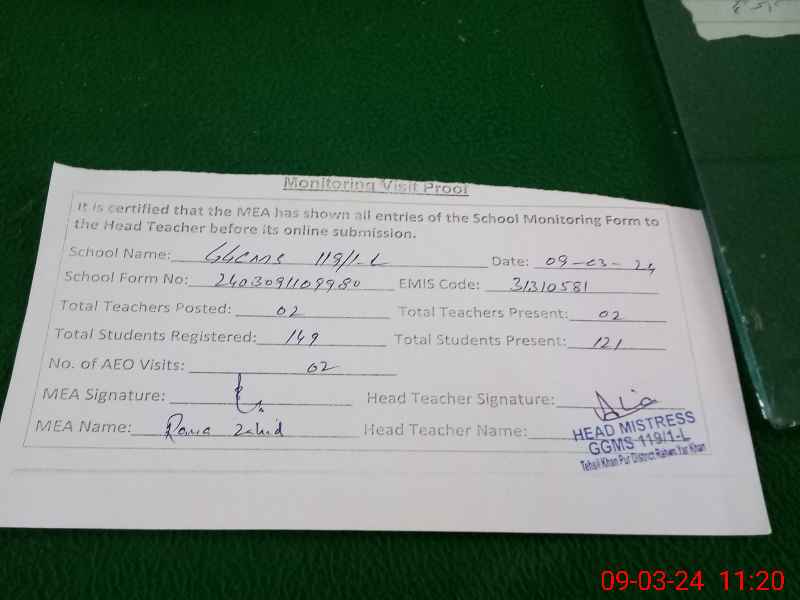 Monitoring Visit Proof
It is certified that the MEA has shown all entries of the School Monitoring Form to
the Head Teacher before its online submission.
School Name: GGCMS 119/1-L Date: 09-03-24
School Form No: 2403091109980 EMIS Code: 31310581
Total Teachers Posted: 02 Total Teachers Present: 02
Total Students Registered: 149 Total Students Present: 121
No. of AEO Visits: 02
MEA Signature: Head Teacher Signature:
MEA Name: Rana Zahid Head Teacher Name:
HEAD MISTRESS
GGMS 119/1-L
Tehsil Khan Pur District Rahim Yar Khan
09-03-24 11:20